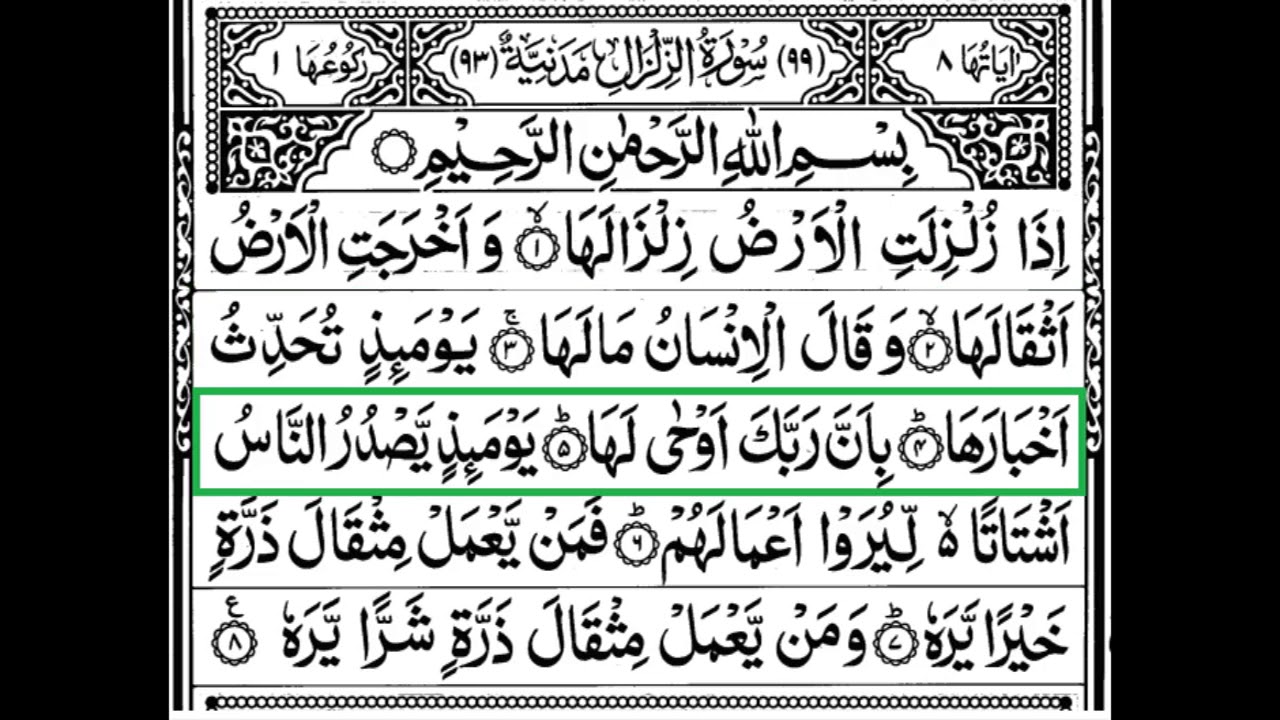 اٰيَاتُهَا ٨ (٩٩) سُوْرَةُ الزِّلْزَالِ مَدَنِيَّةٌ (٩٣) رُكُوْعُهَا ١
بِسْمِ اللّٰهِ الرَّحْمٰنِ الرَّحِيْمِ
اِذَا زُلْزِلَتِ الْاَرْضُ زِلْزَالَهَا ۙ‏﴿۱﴾ وَ اَخْرَجَتِ الْاَرْضُ
اَثْقَالَهَا ۙ‏﴿۲﴾ وَ قَالَ الْاِنْسَانُ مَا لَهَا ۚ‏﴿۳﴾ يَوْمَئِذٍ تُحَدِّثُ
اَخْبَارَهَا ؕ‏﴿۴﴾ بِاَنَّ رَبَّكَ اَوْحٰى لَهَا ؕ‏﴿۵﴾ يَوْمَئِذٍ يَّصْدُرُ النَّاسُ
اَشْتَاتًا ۙ۬ لِّيُرَوْا اَعْمَالَهُمْ ؕ‏﴿۶﴾ فَمَنْ يَّعْمَلْ مِثْقَالَ ذَرَّةٍ
خَيْرًا يَّرَهٗ ؕ‏﴿۷﴾ وَ مَنْ يَّعْمَلْ مِثْقَالَ ذَرَّةٍ شَرًّا يَّرَهٗ ﴿۸﴾ ع